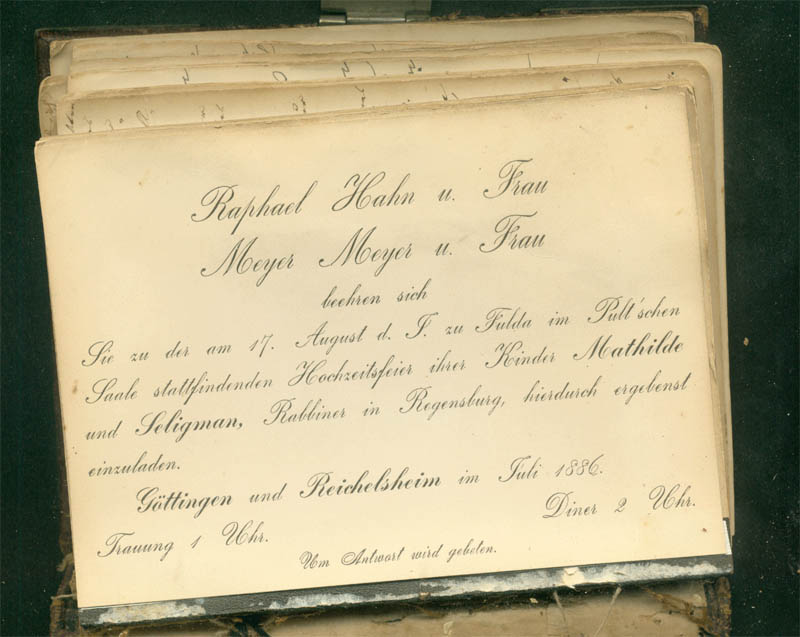 Raphael Hahn u. Frau
Meyer Meyer u. Frau
beehren sich
Sie zu der am 17. August d. J. zu Fulda im Pult'schen
Saale stattfindenden Hochzeitsfeier ihrer Kinder Mathilde
und Seligman, Rabbiner in Regensburg, hierdurch ergebenst
einzuladen.
Göttingen und Reichelsheim im Juli 1886.
Trauung 1 Uhr.
Diner 2 Uhr.
Um Antwort wird gebeten.